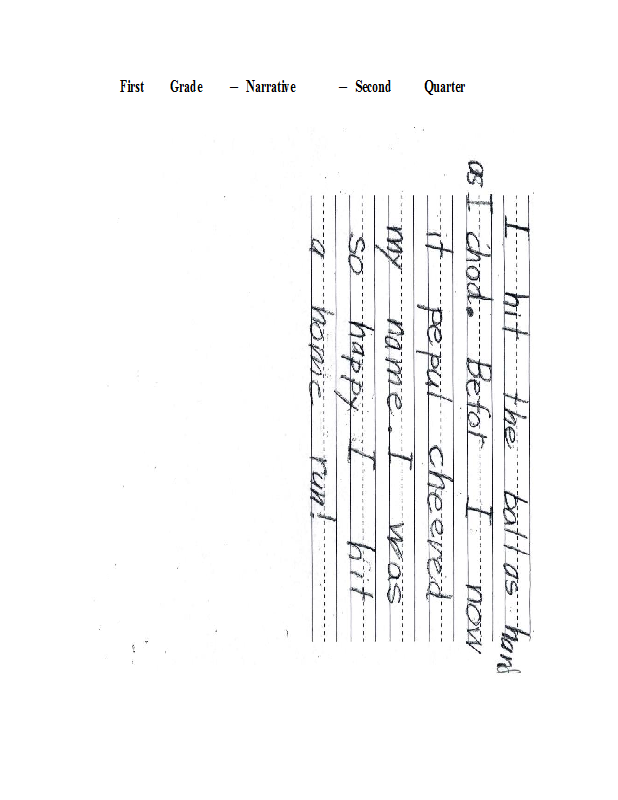 First Grade – Narrative – Second Quarter
I hit the ball as hard
as I chod. Befor I now
it pepul cheered
my name. I was
so happy I hit
a home run!